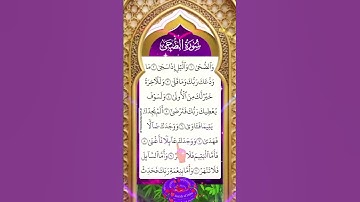 سُورَةُ الضُّحَىٰ
وَالضُّحَىٰ ① وَاللَّيْلِ إِذَا سَجَىٰ ② مَا
وَدَّعَكَ رَبُّكَ وَمَا قَلَىٰ ③ وَلَلْآخِرَةُ
خَيْرٌ لَّكَ مِنَ الْأُولَىٰ ④ وَلَسَوْفَ
يُعْطِيكَ رَبُّكَ فَتَرْضَىٰ ⑤ أَلَمْ يَجِدْكَ
يَتِيمًا فَآوَىٰ ⑥ وَوَجَدَكَ ضَالًّا
فَهَدَىٰ ⑦ وَوَجَدَكَ عَائِلًا فَأَغْنَىٰ ⑧
فَأَمَّا الْيَتِيمَ فَلَا ⑨ وَأَمَّا السَّائِلَ
فَلَا تَنْهَرْ ⑩ وَأَمَّا بِنِعْمَةِ رَبِّكَ فَحَدِّثْ